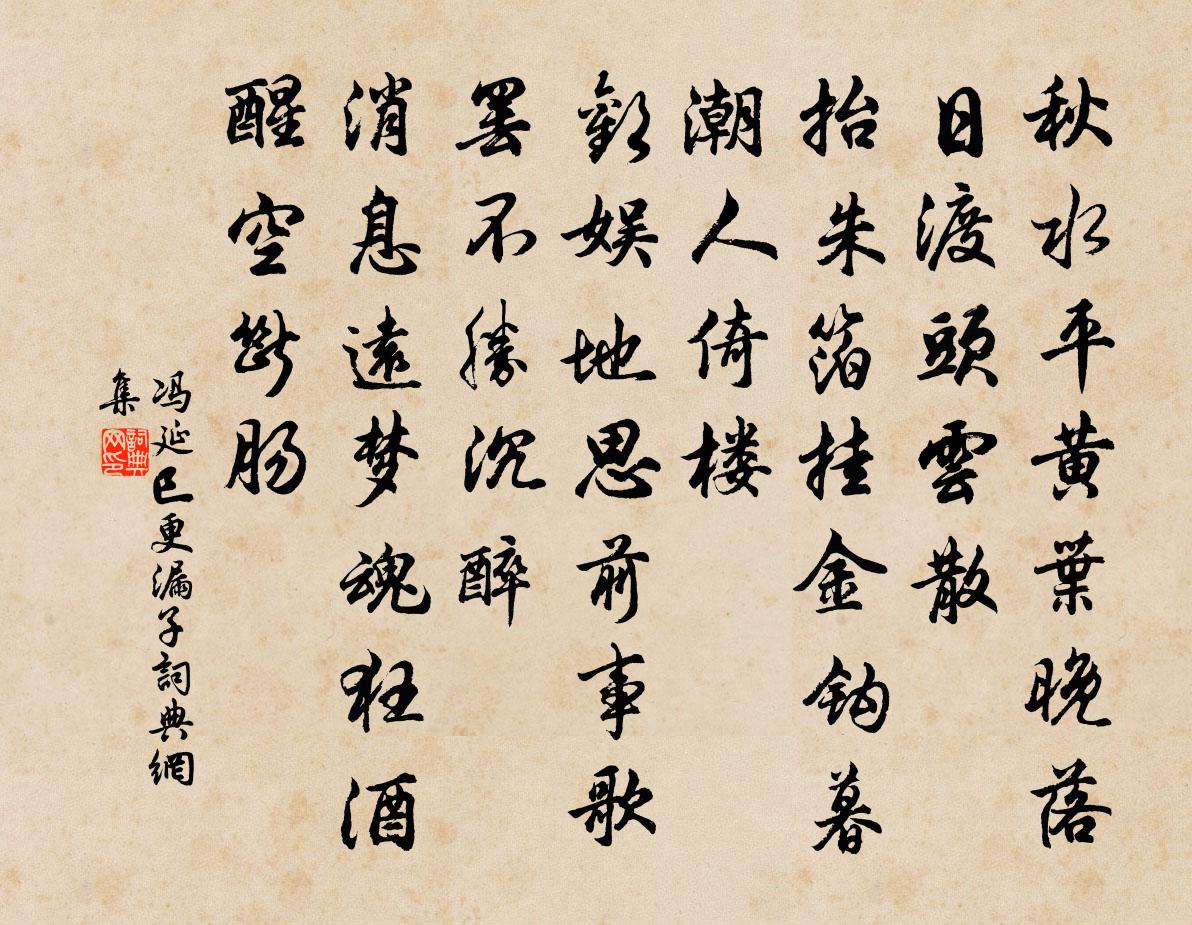 秋水平黄葉晚落
日渡頭雲散
抬朱箔挂金鈎暮
潮人倚楼
歡娱地思前事歌
罢不勝沉醉
消息遠梦魂狂酒
醒空斷肠
冯延巳更漏子詞典網
集
詞典网印